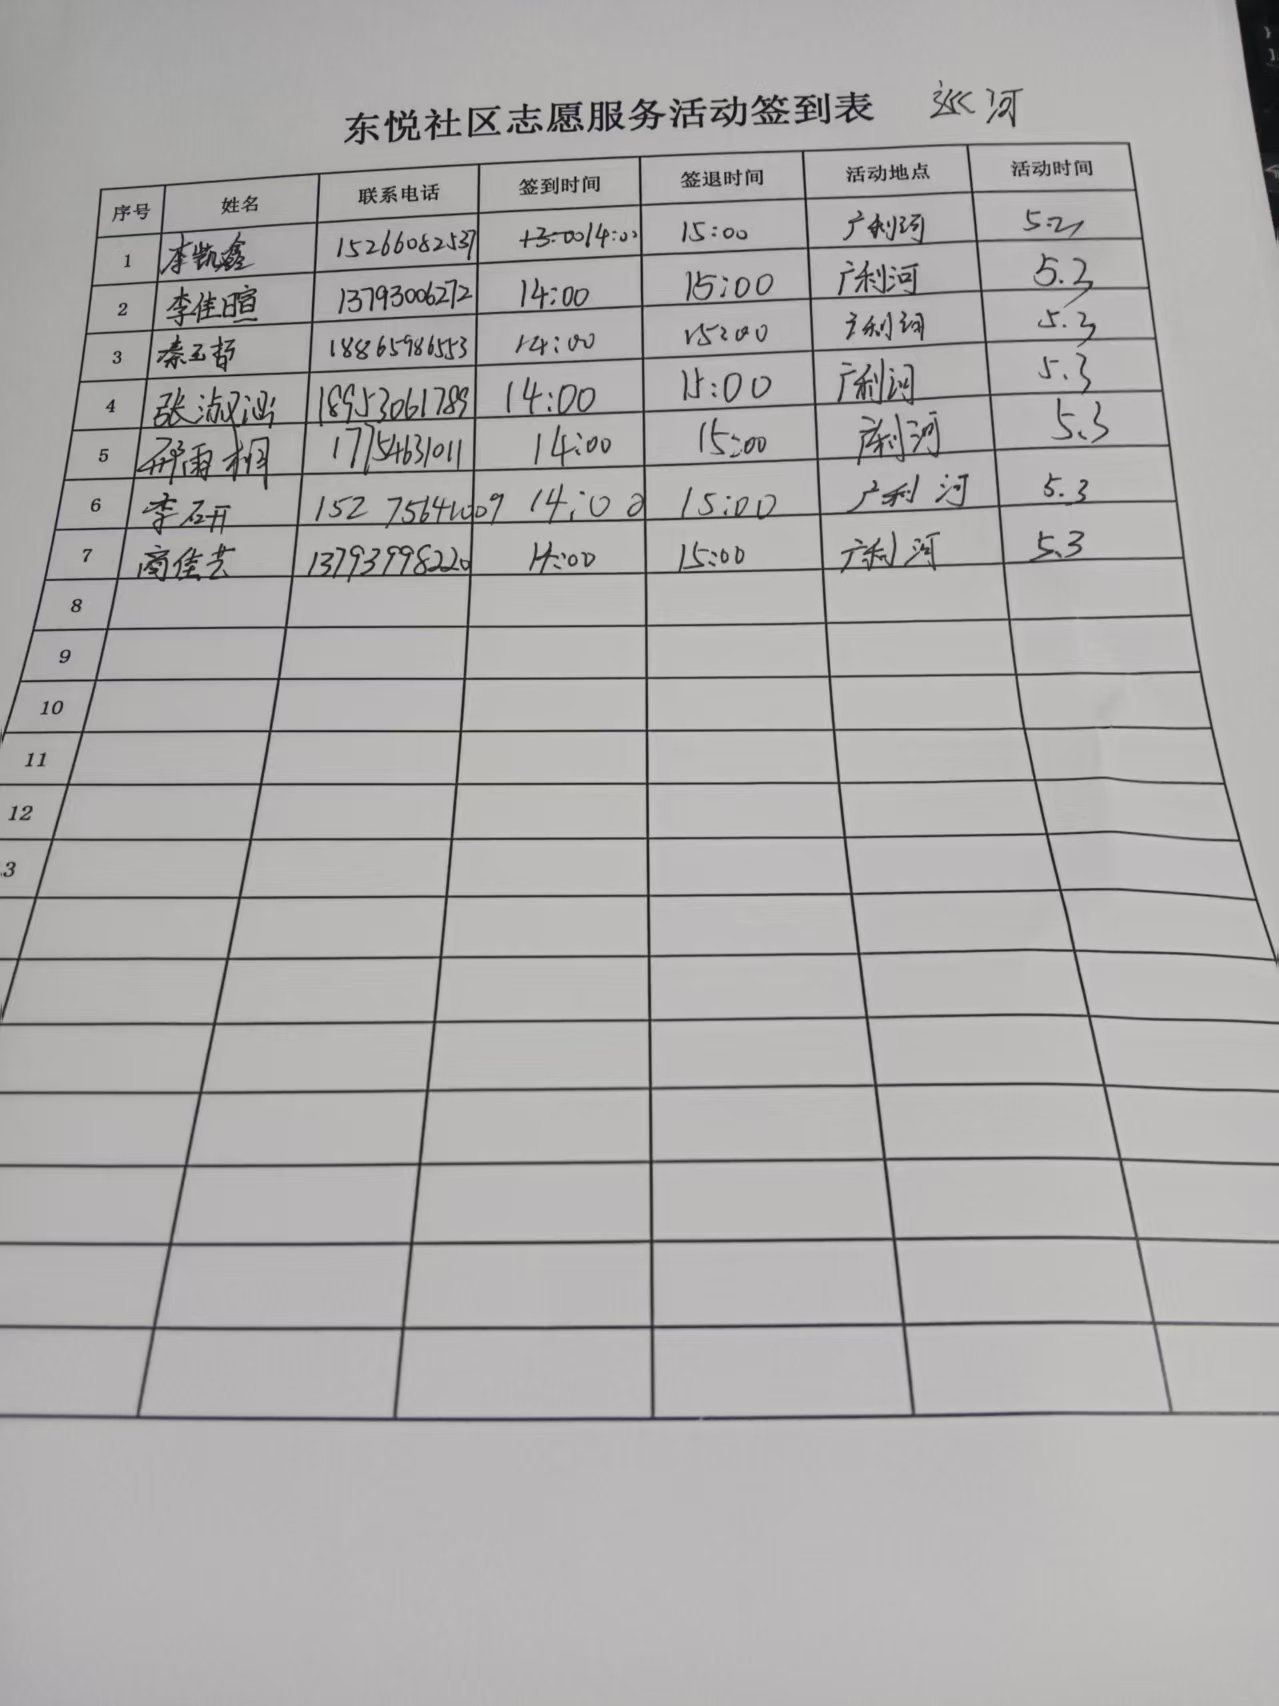 东悦社区志愿服务活动签到表 巡河
序号 姓名 联系电话 签到时间 签退时间 活动地点 活动时间
1 李凯鑫 15266082537 13:00 14:00 15:00 广利河
2 李佳暄 13793006272 14:00 15:00 广利河 5.3
3 秦玉哲 18865986553 14:00 15:00 广利河 5.3
4 张淑涵 18953061789 14:00 15:00 广利河 5.3
5 邢雨桐 17754631011 14:00 15:00 广利河 5.3
6 李研 14:00 15:00 广利河 5.3
7 商佳芸 13793998220 14:00 15:00 广利河 5.3
8
9
10
11
12